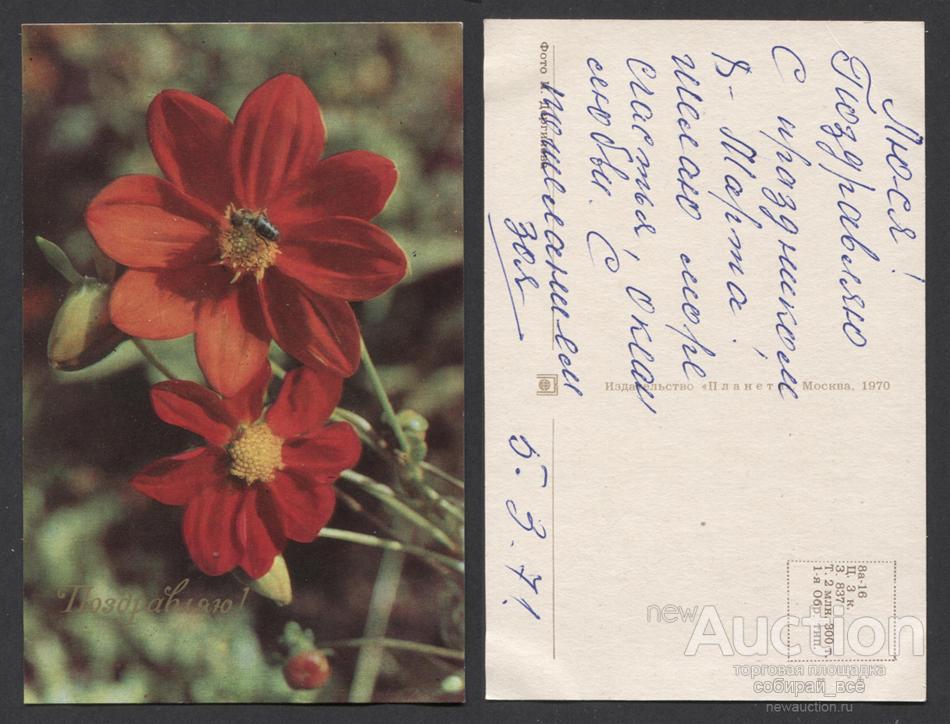 Поздравляю!
Люся!
Поздравляю
С праздником
8-Марта!
Желаю море
счастья, океан
любви. С
пожеланием
Зоя
5.3.71
Издательство «Планета» Москва, 1970
8а-16
Ц. 3 к.
З. 837
Т. 2 млн. 800 т.
1-я Обр. тип.
newAuction
торговая площадка
собирай_всё
newauction.ru